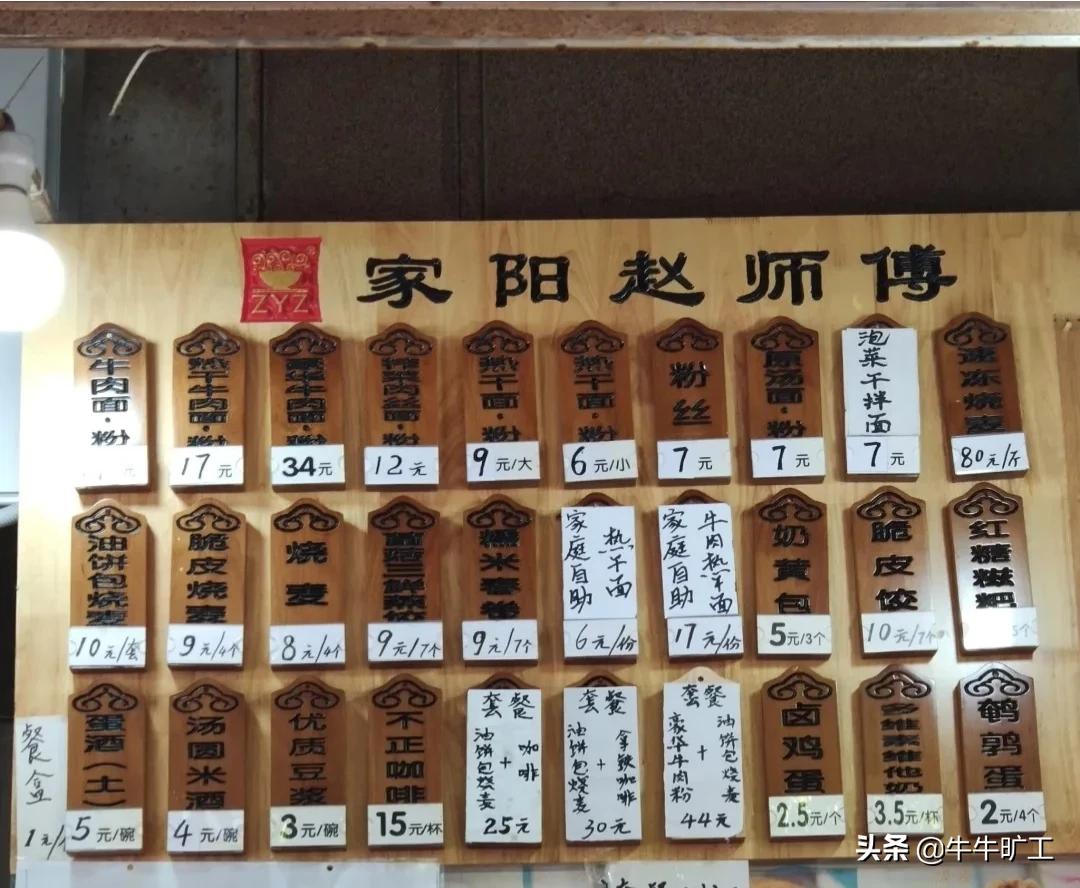 ZYZ
家阳赵师傅
牛肉面·粉
元
热干牛肉面·粉
17元
豪华牛肉面·粉
34元
12元
热干面·粉
9元/大
热干面·粉
6元/小
粉丝
7元
原汤面·粉
7元
泡菜干拌面
7元
速冻烧麦
80元/斤
油饼包烧麦
10元/套
脆皮烧麦
9元/4个
烧麦
8元/4个
9元/7个
糯米春卷
9元/7个
热干面
家庭自助
6元/份
牛肉热干面
家庭自助
17元/份
奶黄包
5元/3个
脆皮饺
10元/7个
红糖糍粑
5个
餐盒
1元/
蛋酒(土)
5元/碗
汤圆米酒
4元/碗
优质豆浆
3元/碗
不正咖啡
15元/杯
套餐
油饼包烧麦
+
咖啡
25元
套餐
油饼包烧麦
+
拿铁咖啡
30元
套餐
油饼包烧麦
+
豪华牛肉粉
44元
卤鸡蛋
2.5元/个
多维素维他奶
3.5元/杯
鹌鹑蛋
2元/4个
头条 @牛牛旷工